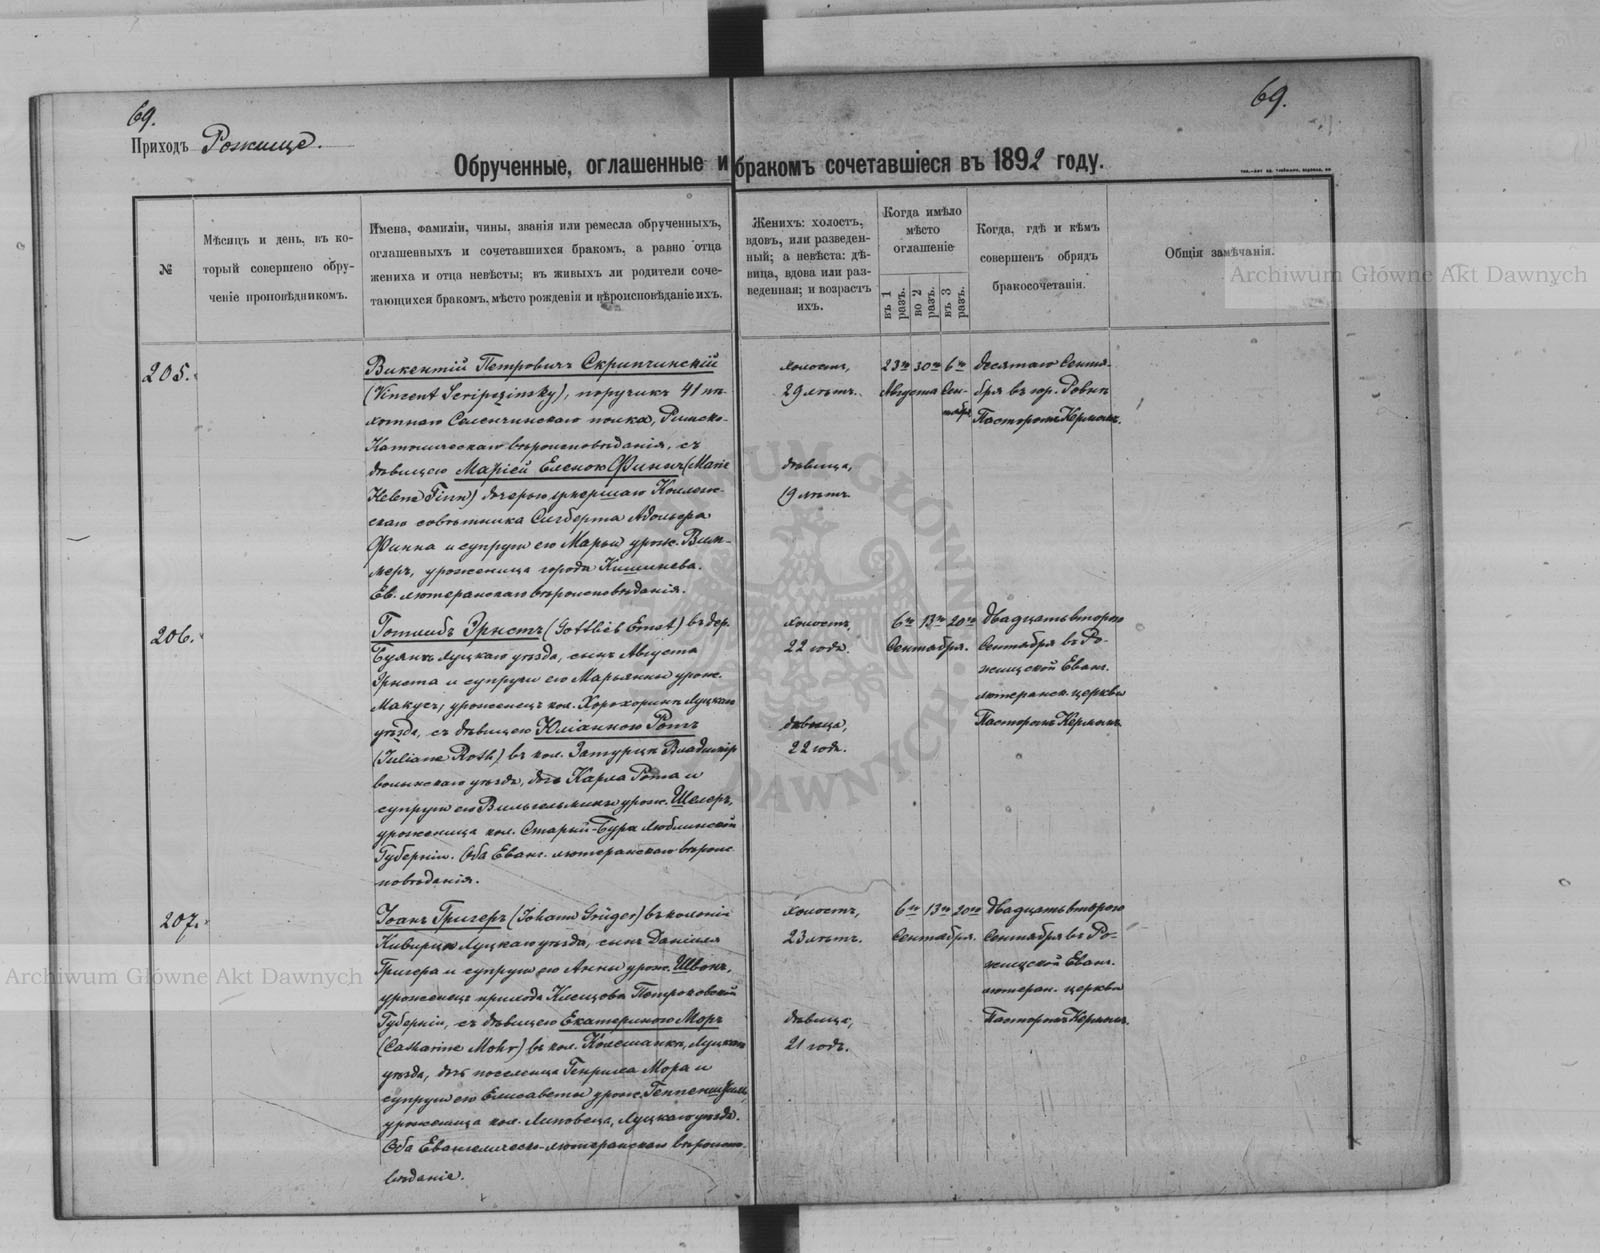 69.
69.
Приходъ Рожище.
Обрученные, оглашенные и бракомъ сочетавшіеся въ 1892 году.
№
Мѣсяцъ и день, въ ко-
торый совершено обру-
ченіе проповѣдникомъ.
Имена, фамиліи, чины, званія или ремесла обрученныхъ,
оглашенныхъ и сочетавшихся бракомъ, а равно отца
жениха и отца невѣсты; въ живыхъ ли родители соче-
тающихся бракомъ, мѣсто рожденія и вѣроисповѣданіе ихъ.
Женихъ: холостъ,
вдовъ, или разведен-
ный; а невѣста: дѣ-
вица, вдова или раз-
веденная; и возрастъ
ихъ.
Когда имѣло
мѣсто
оглашеніе
въ 1 разъ.
во 2 разъ.
въ 3 разъ.
Когда, гдѣ и кѣмъ
совершенъ обрядъ
бракосочетанія.
Общія замѣчанія.
205.
Викентій Петровичъ Скрипчинскій
(Vincent Scripczinsky), поручикъ 41 пѣ-
хотнаго Селенгинскаго полка, Римско-
Католическаго вѣроисповѣданія, съ
дѣвицею Маріей Еленою Финнъ (Marie
Helene Finn) дочерью умершаго Коллеж-
скаго совѣтника Сигберта Адольфа
Финна и супруги его Марьи урож. Вим-
меръ, уроженица города Кишинева.
Ев. лютеранскаго вѣроисповѣданія.
холостъ,
29 лѣтъ.
дѣвица,
19 лѣтъ.
23го 30го 6го
Августа Сен-
тября
десятаго Сентя-
бря въ гор. Ровнѣ
Пасторомъ Кермомъ.
206.
Готлибъ Эрнстъ (Gottlieb Ernst) въ дер.
Буянъ Луцкаго уѣзда, сынъ Августа
Эрнста и супруги его Марьянны урож.
Макусъ, уроженецъ кол. Хорохоринъ Луцкаго
уѣзда, съ дѣвицею Юліанною Ротъ
(Juliane Roth) въ кол. Затурцы Владимір
волынскаго уѣзда, дочь Карла Рота и
супруги его Вильгельмины урож. Шелеръ,
уроженица кол. Старый-Бура Люблинской
Губерніи. Оба Еванг. лютеранскаго вѣроис-
повѣданія.
холостъ,
22 года.
дѣвица,
22 года.
6го 13го 20го
Сентября.
двадцать второго
Сентября въ Ро-
жищской Еванг.
лютеранск. церкви
Пасторомъ Кермомъ
207.
Іоанъ Григеръ (Johann Grüger) въ колоніи
Киверцы Луцкаго уѣзда, сынъ Даніеля
Григера и супруги его Анны урож. Швонъ,
уроженецъ прихода Клещова Петроковской
Губерніи, съ дѣвицею Екатериною Моръ
(Catharine Mohr) въ кол. Луцкаго
уѣзда, дочь поселенца Генриха Мора и
супруги его Елисаветы урож.
уроженица кол. Липовецъ, Луцкаго уѣзда.
Оба Евангелическо-лютеранскаго вѣроиспо-
вѣданіе.
холостъ,
23 лѣтъ.
дѣвица,
21 годъ.
6го 13го 20го
Сентября.
двадцать второго
Сентября въ Ро-
жищской Еванг.
лютеран. церкви
Пасторомъ Кермомъ.
Archiwum Główne Akt Dawnych
Archiwum Główne Akt Dawnych